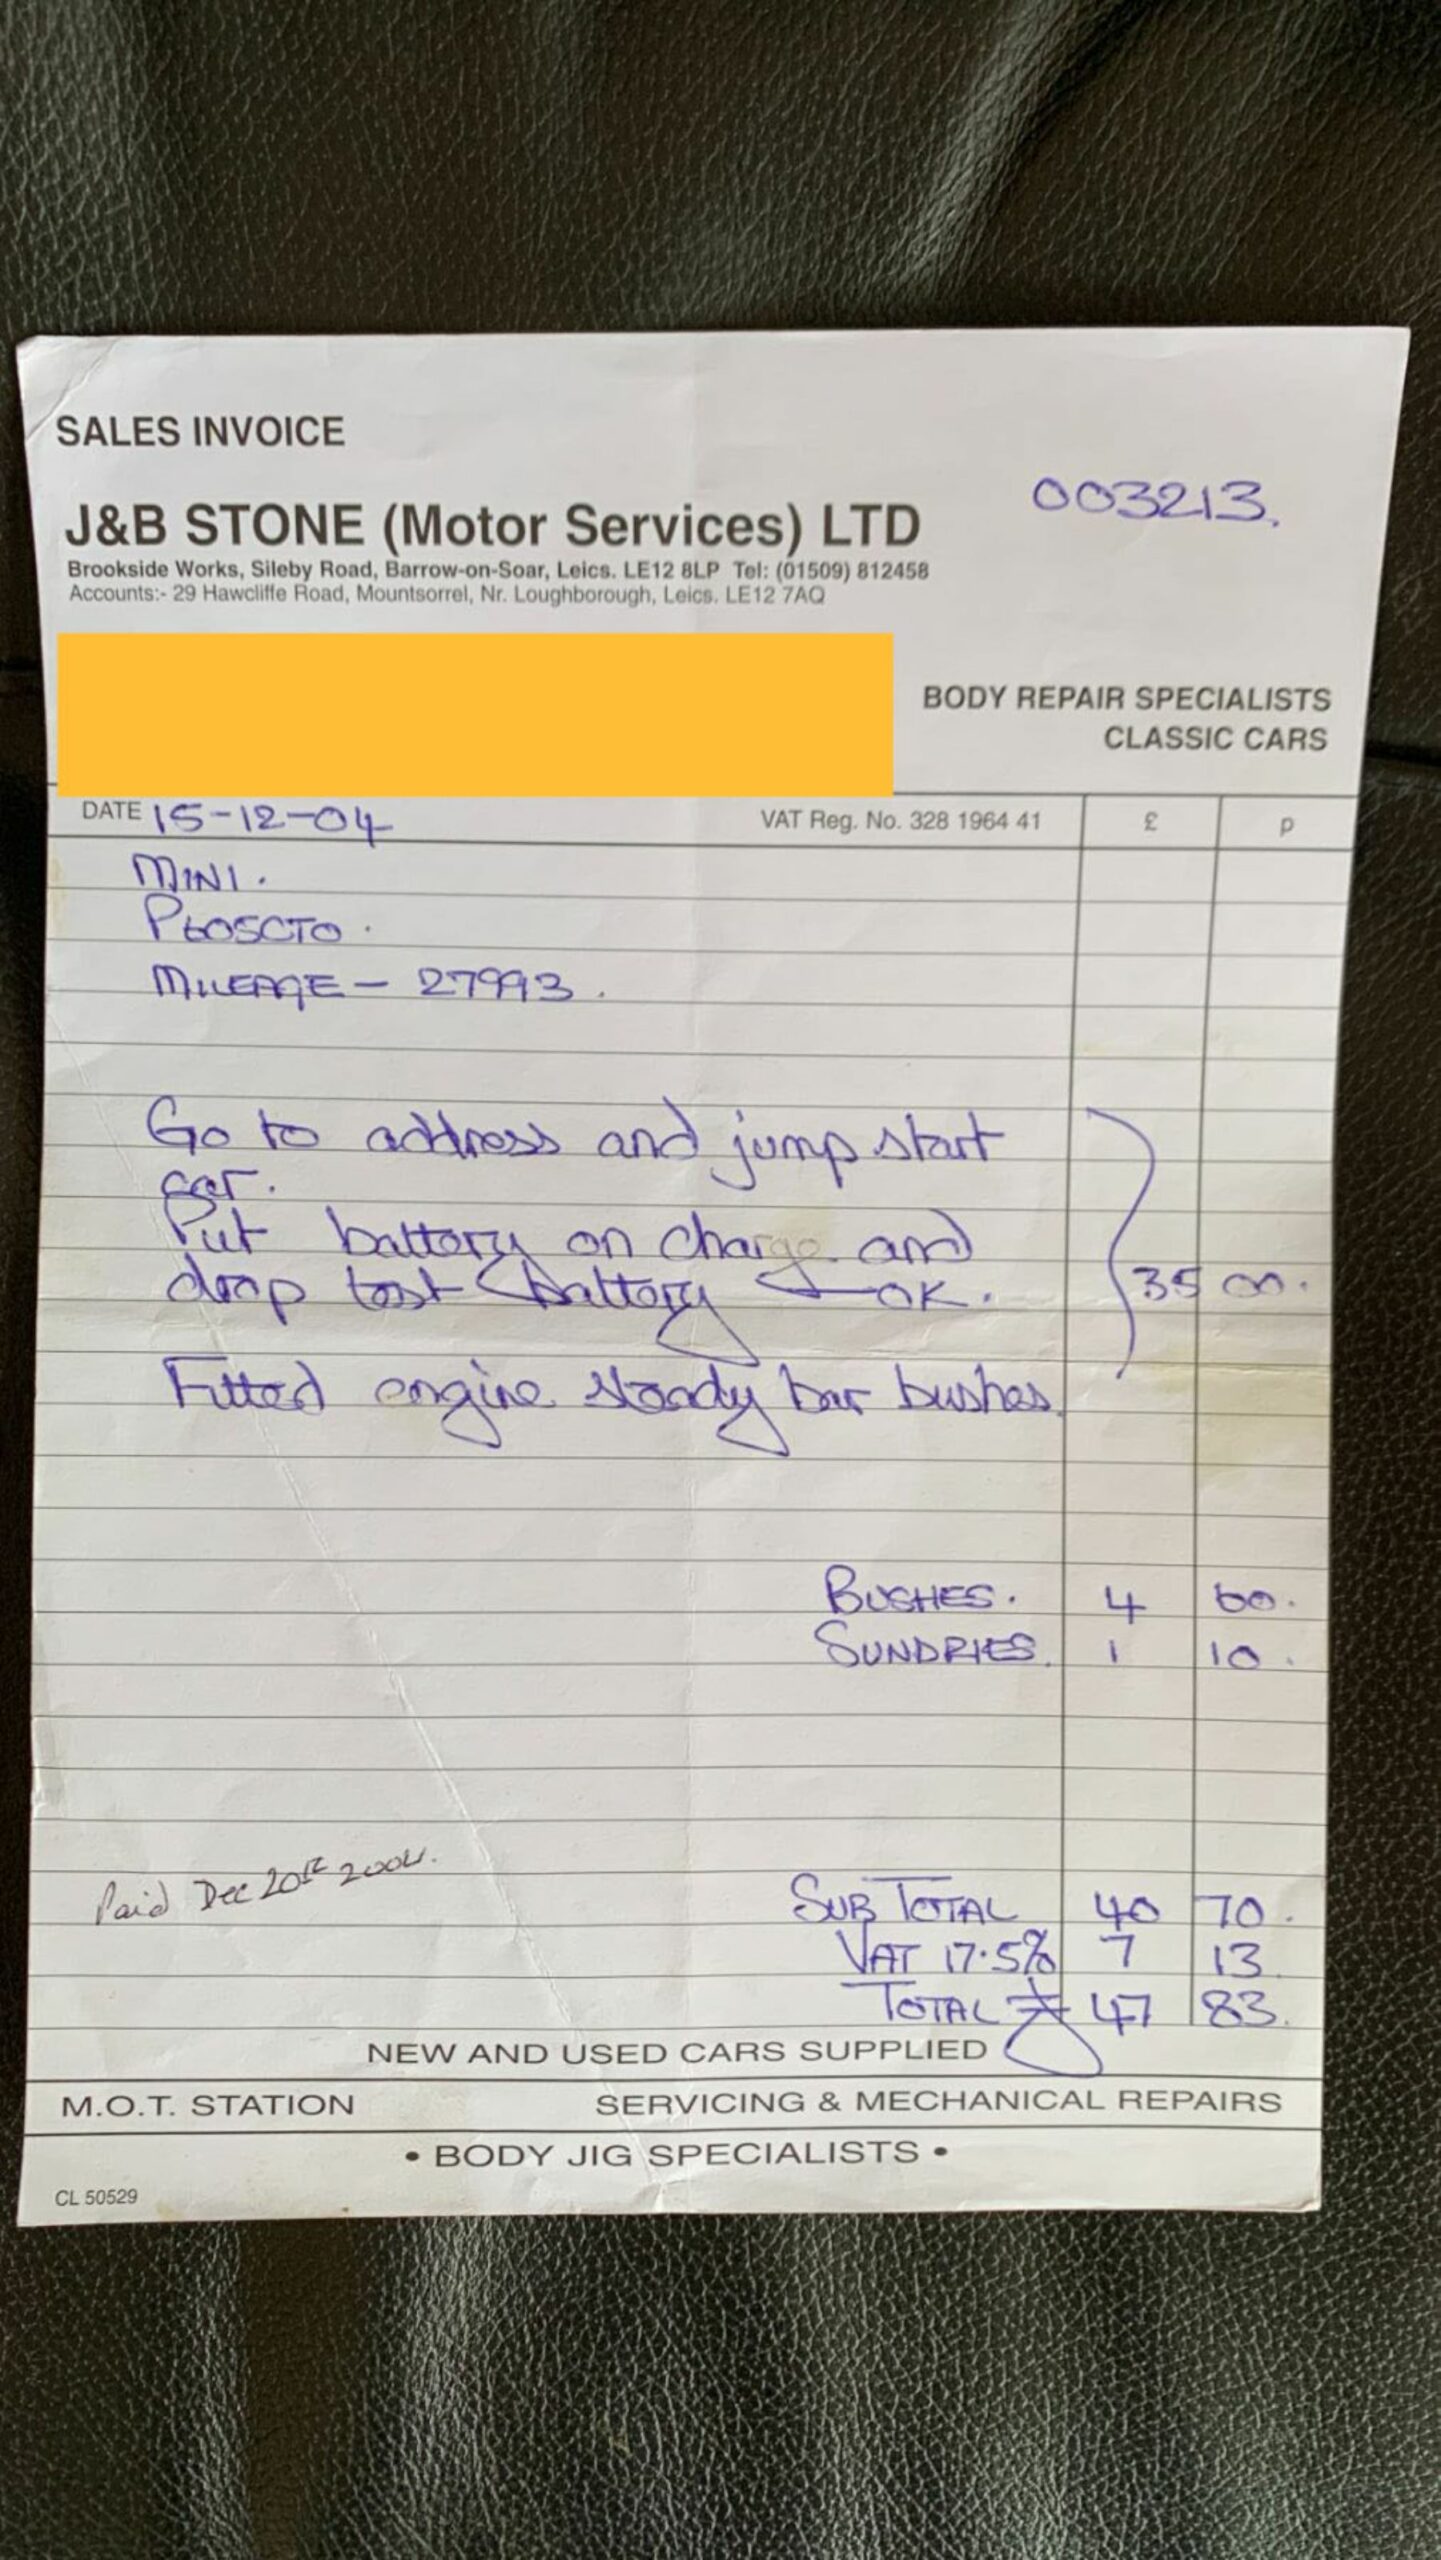 SALES INVOICE
003213.
J&B STONE (Motor Services) LTD
Brookside Works, Sileby Road, Barrow-on-Soar, Leics. LE12 8LP Tel: (01509) 812458
Accounts:- 29 Hawcliffe Road, Mountsorrel, Nr. Loughborough, Leics. LE12 7AQ
BODY REPAIR SPECIALISTS
CLASSIC CARS
DATE 15-12-04 VAT Reg. No. 328 1964 41 £ p
MINI.
P605CTO.
MILEAGE - 27993.
Go to address and jump start
car.
Put battery on charge and
drop test battery - OK. 35 00.
Fitted engine steady bar bushes.
BUSHES. 4 60.
SUNDRIES. 1 10.
Paid Dec 20th 2004.
SUB TOTAL 40 70.
VAT 17.5% 7 13
TOTAL £ 47 83.
NEW AND USED CARS SUPPLIED
M.O.T. STATION SERVICING & MECHANICAL REPAIRS
• BODY JIG SPECIALISTS •
CL 50529